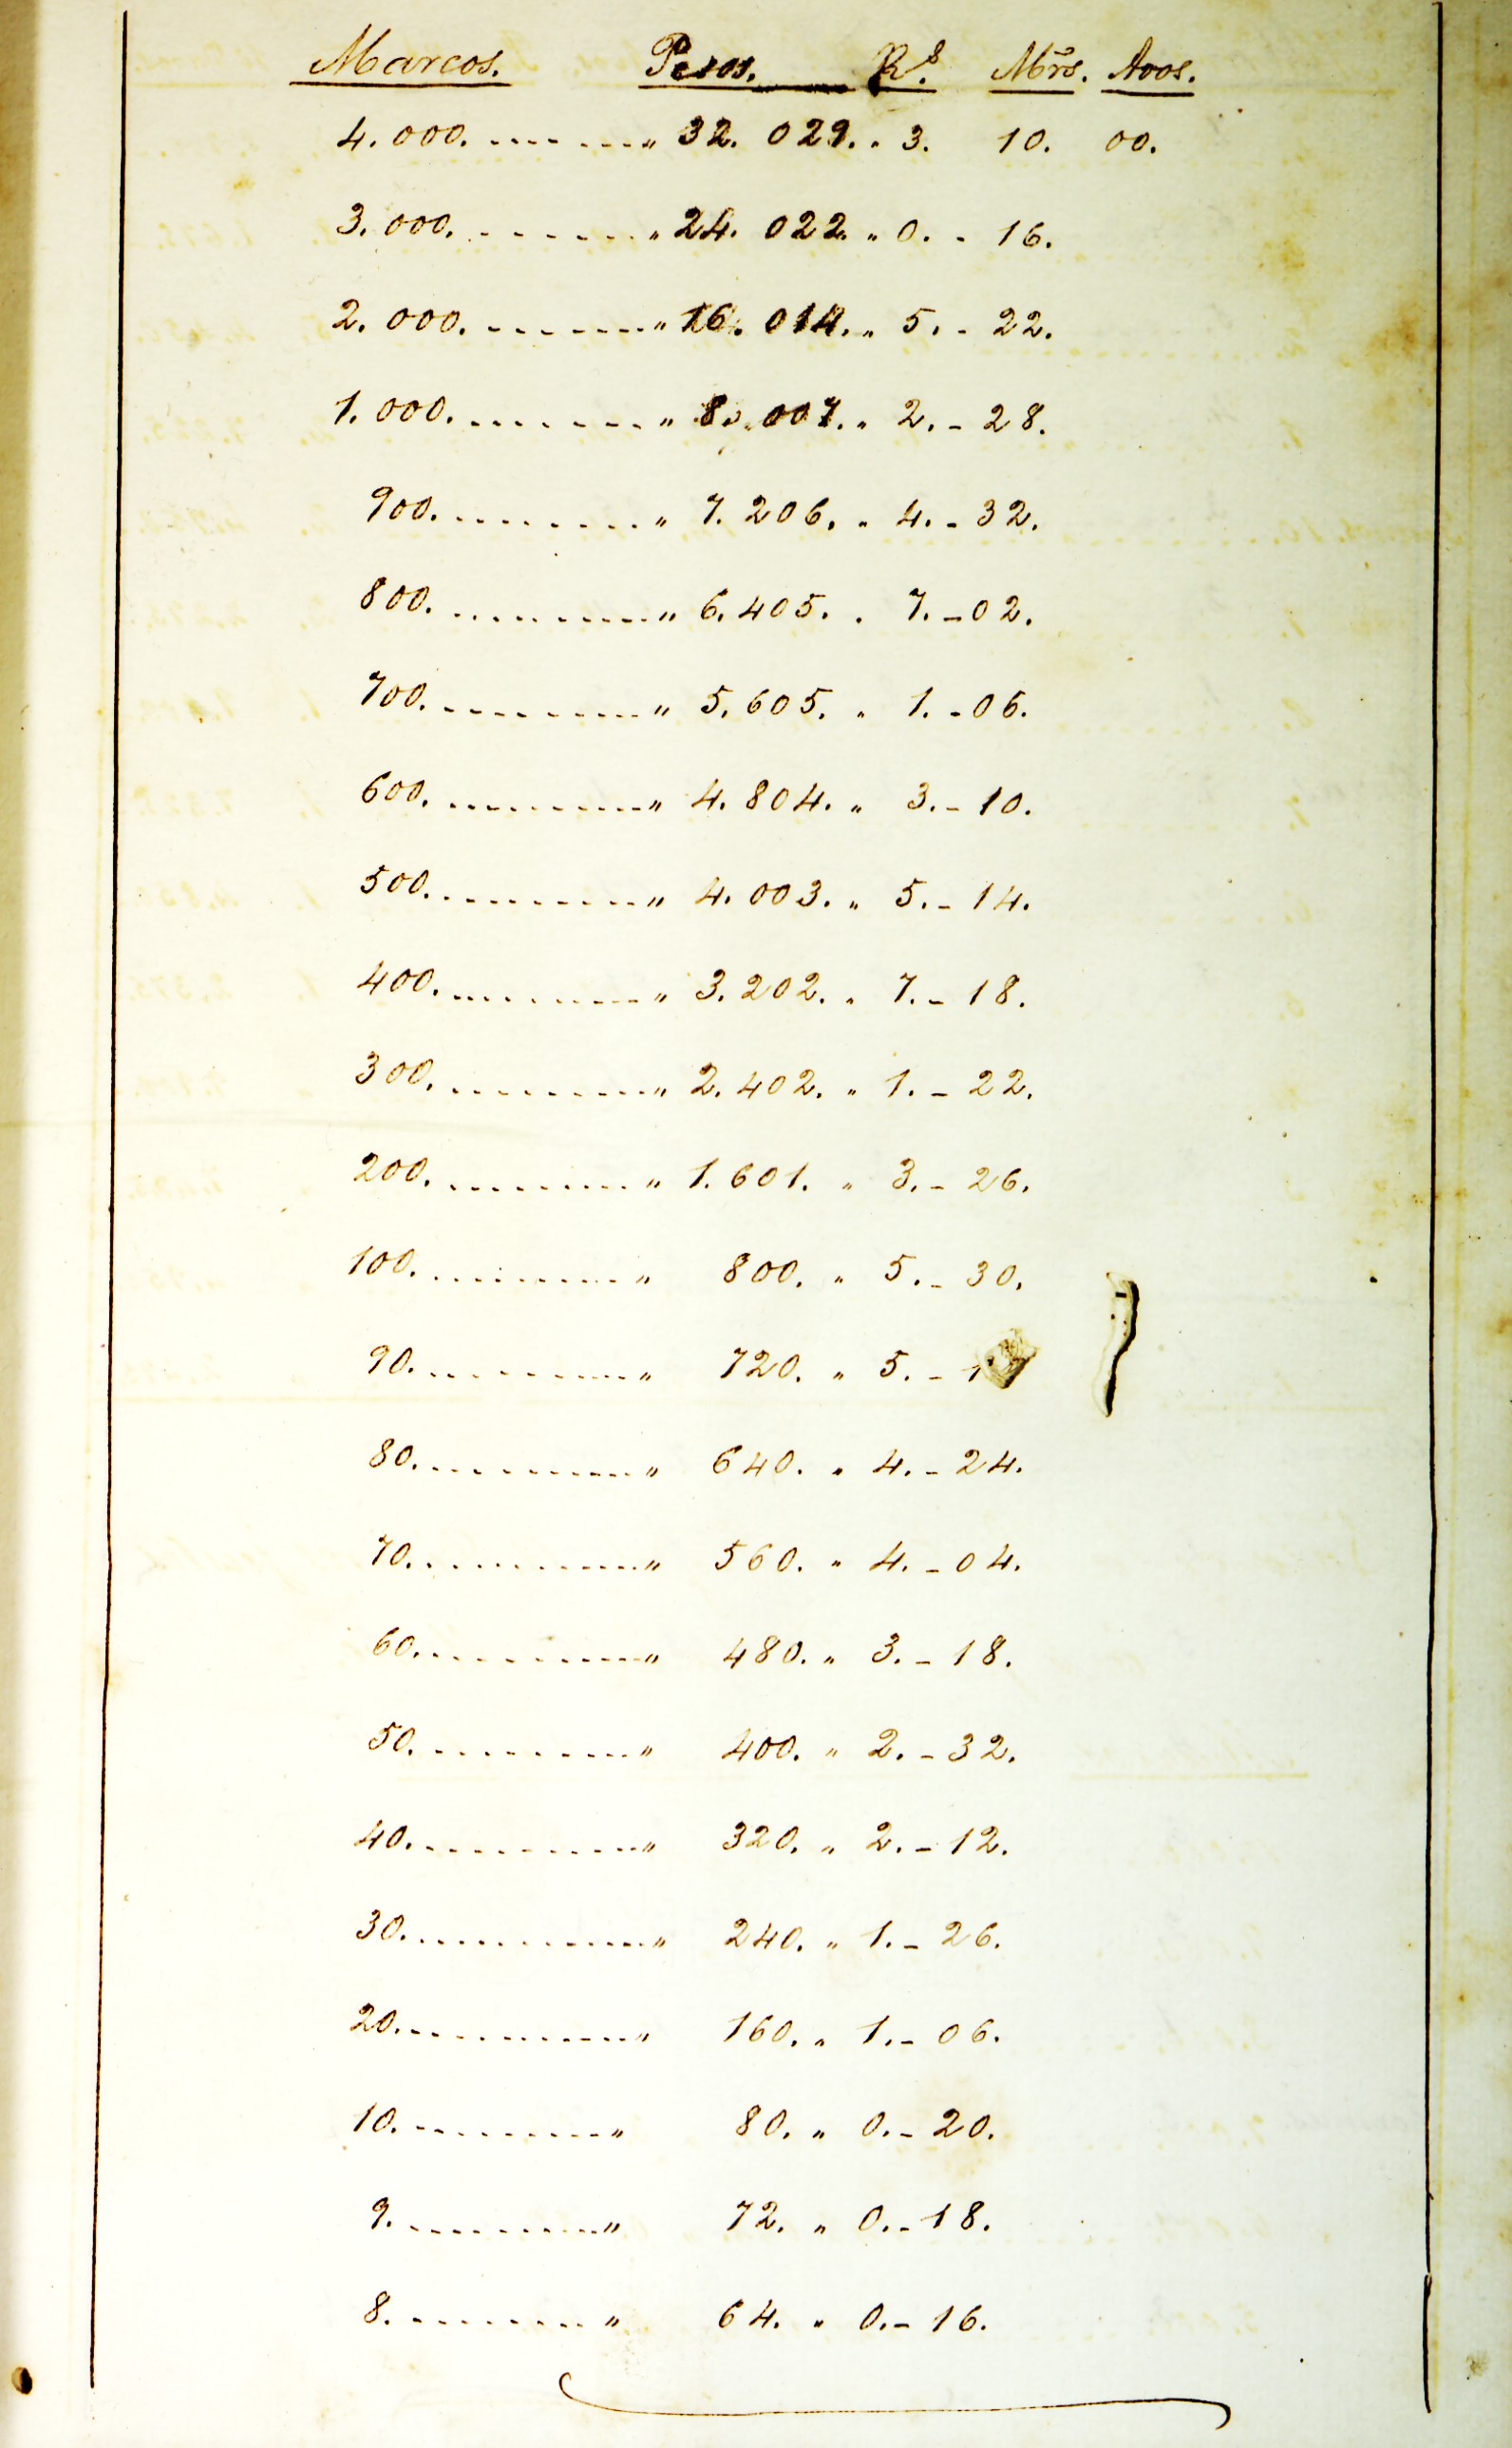 Marcos. Pesos. Rs. Mrs. Avos.
4.000. .......... " 32.029. " 3. 10. 00.
3.000. .......... " 24.022. " 0. - 16.
2.000. .......... " 16.014. " 5. - 22.
1.000. .......... " 8.007. " 2. - 28.
900. .......... " 7.206. " 4. - 32.
800. .......... " 6.405. . 7. - 02.
700. .......... " 5.605. " 1. - 06.
600. .......... " 4.804. " 3. - 10.
500. .......... " 4.003. " 5. - 14.
400. .......... " 3.202. " 7. - 18.
300. .......... " 2.402. " 1. - 22.
200. .......... " 1.601. " 3. - 26.
100. .......... " 800. " 5. - 30.
90. .......... " 720. " 5. -
80. .......... " 640. " 4. - 24.
70. .......... " 560. " 4. - 04.
60. .......... " 480. " 3. - 18.
50. .......... " 400. " 2. - 32.
40. .......... " 320. " 2. - 12.
30. .......... " 240. " 1. - 26.
20. .......... " 160. " 1. - 06.
10. .......... " 80. " 0. - 20.
9. .......... " 72. " 0. - 18.
8. .......... " 64. " 0. - 16.